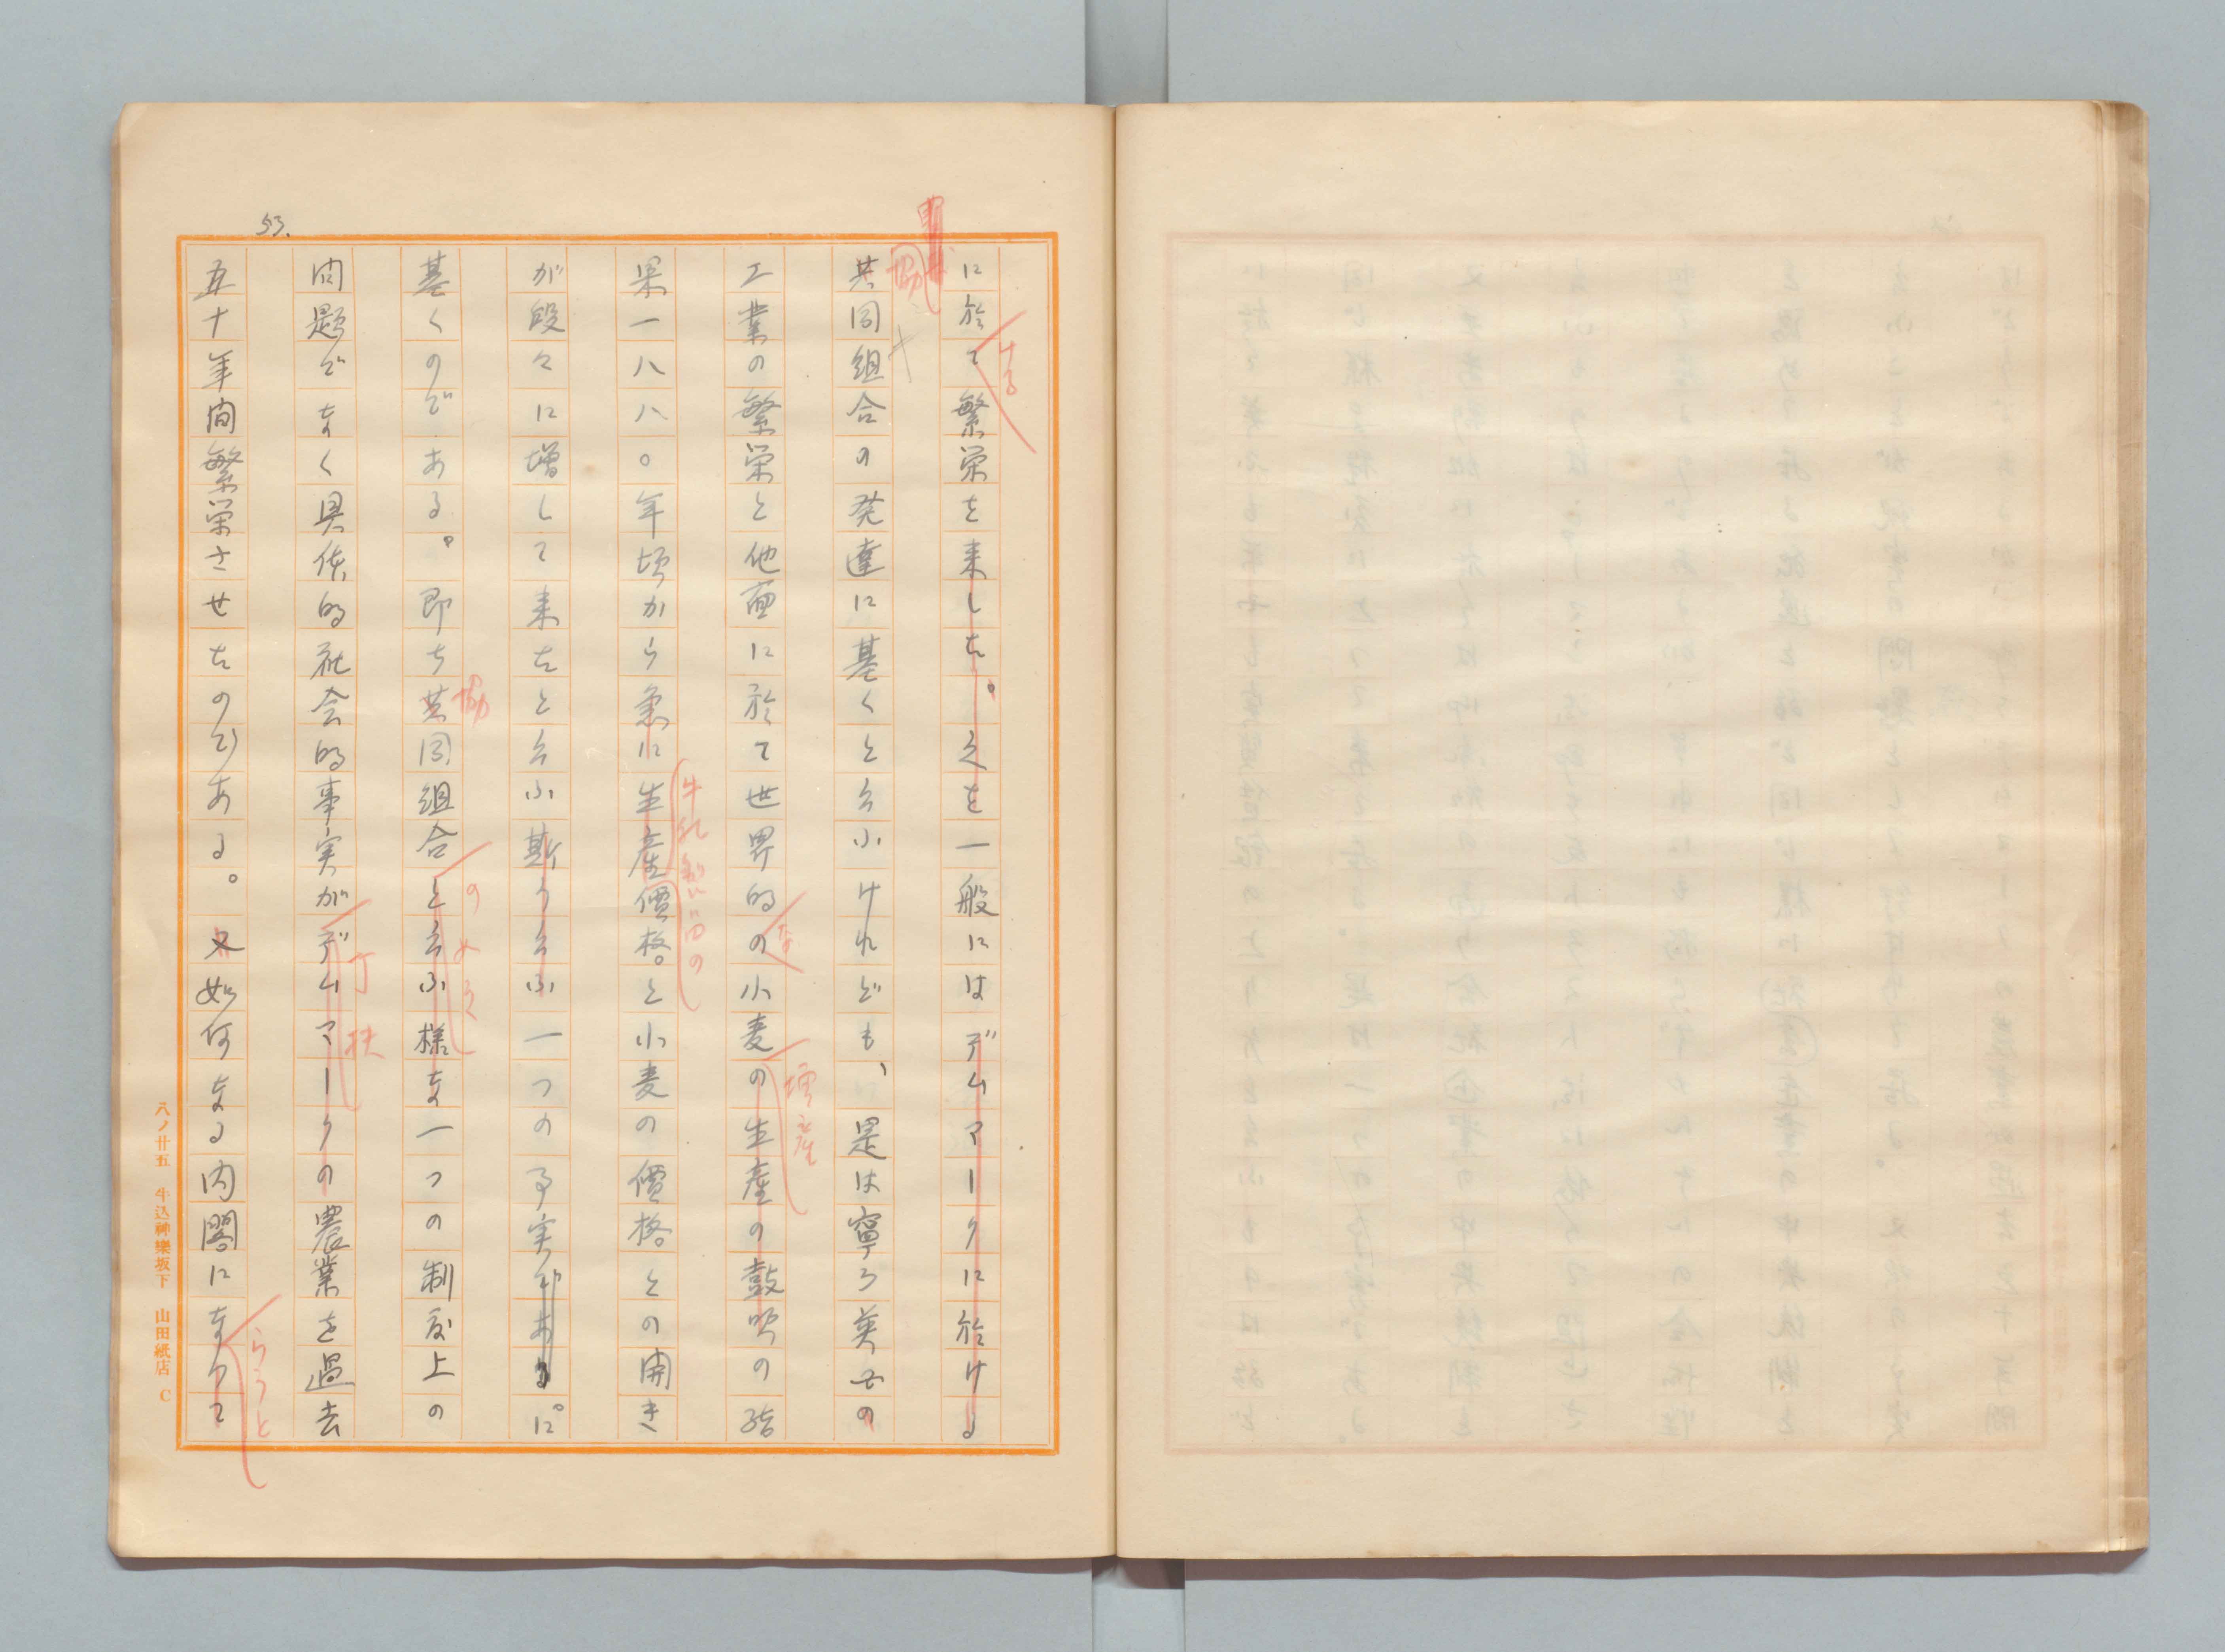 53.
に於て繁栄を来した。之を一般にはデムマークに於ける
ける
協
共同組合の発達に基くと云ふけれども、是は寧ろ英国の
工業の繁栄と他面に於て世界的の小麦の生産の鼓吹の結
な
増産
果一八八〇年頃から急に生産價格と小麦の價格との開き
牛乳製品の
が段々に増して来たと云ふ斯う云ふ一つの事実であるに。
基くのである。即ち共同組合と云ふ様な一つの制度上の
協
のやうな
問題でなく具体的社会的事実がデムマークの農業を過去
丁抹
五十年間繁栄させたのである。又如何なる内閣になつて
らうと
八ノ廿五 牛込神樂坂下 山田紙店 C